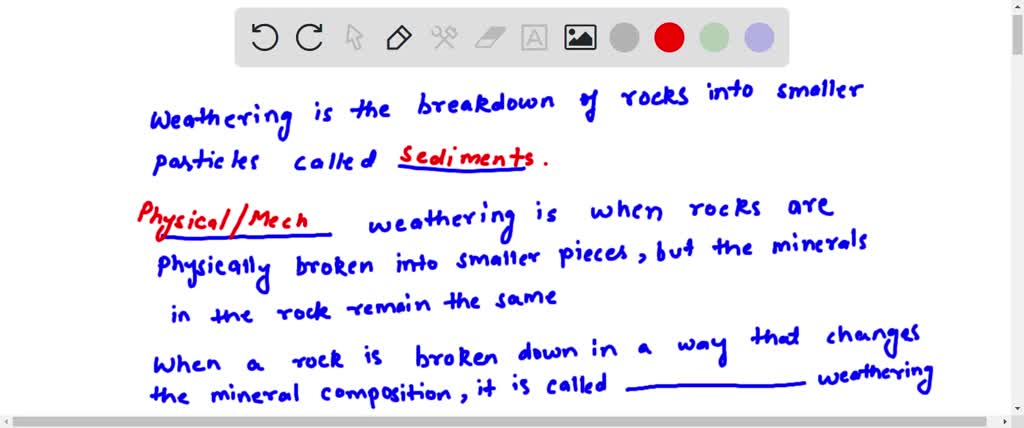 Weathering is the breakdown of rocks into smaller
particles called Sediments.
Physical/Mech weathering is when rocks are
Physically broken into smaller pieces, but the minerals
in the rock remain the same
When a rock is broken down in a way that changes
the mineral composition, it is called __________ weathering